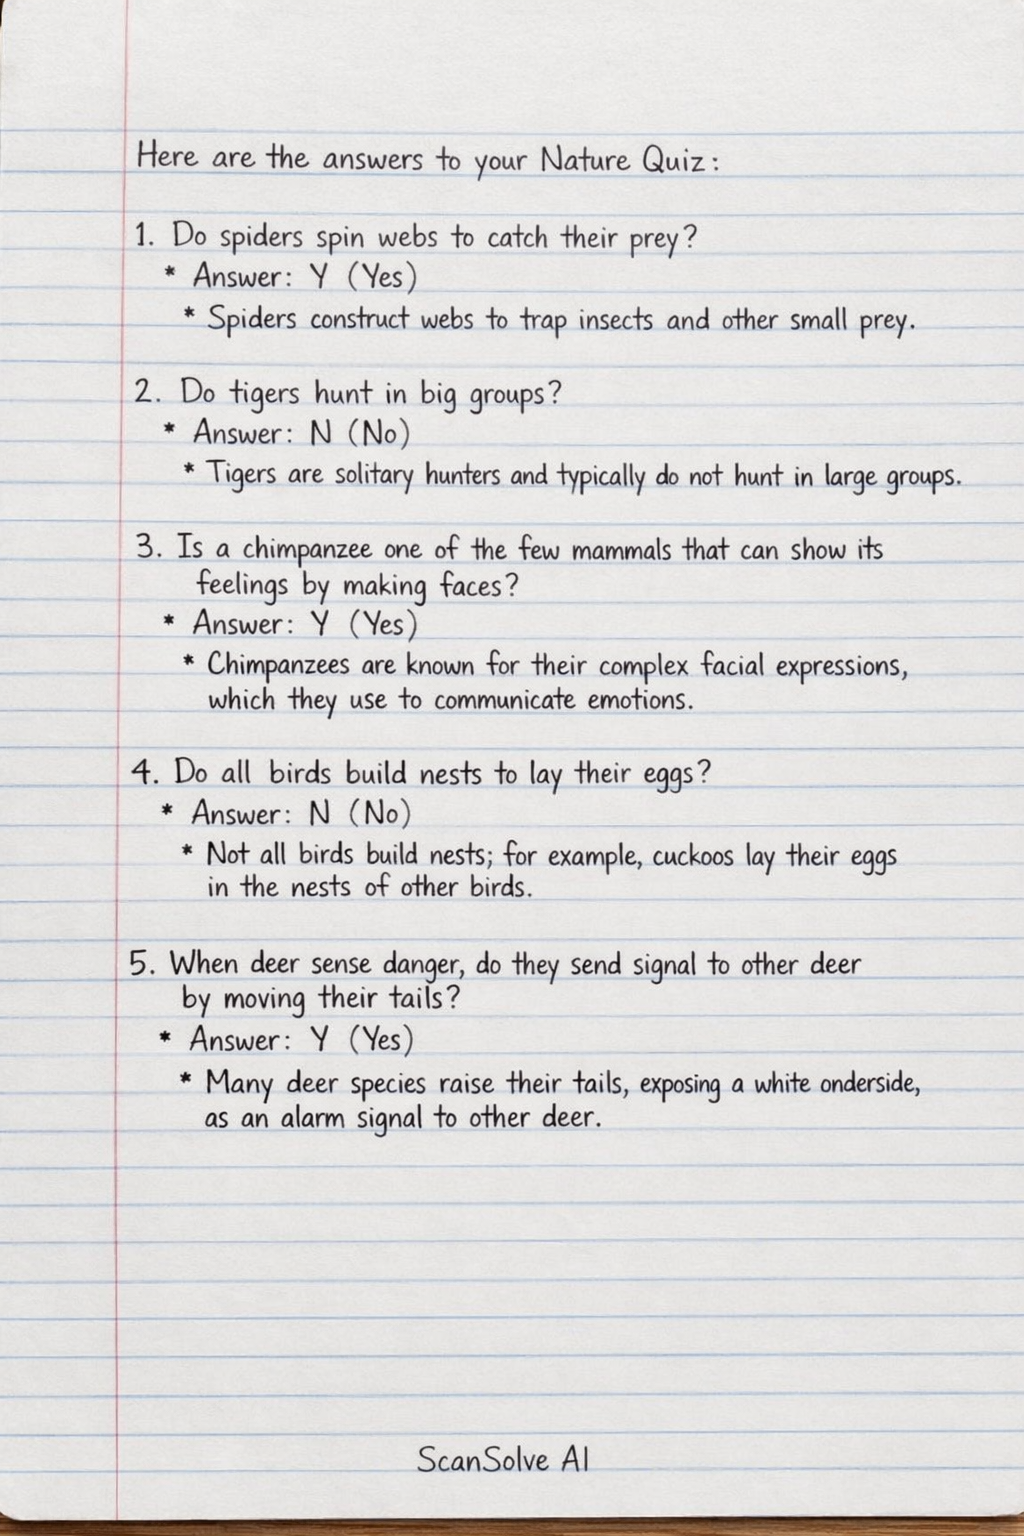 Here are the answers to your Nature Quiz:
1. Do spiders spin webs to catch their prey?
* Answer: Y (Yes)
* Spiders construct webs to trap insects and other small prey.
2. Do tigers hunt in big groups?
* Answer: N (No)
* Tigers are solitary hunters and typically do not hunt in large groups.
3. Is a chimpanzee one of the few mammals that can show its
feelings by making faces?
* Answer: Y (Yes)
* Chimpanzees are known for their complex facial expressions,
which they use to communicate emotions.
4. Do all birds build nests to lay their eggs?
* Answer: N (No)
* Not all birds build nests; for example, cuckoos lay their eggs
in the nests of other birds.
5. When deer sense danger, do they send signal to other deer
by moving their tails?
* Answer: Y (Yes)
* Many deer species raise their tails, exposing a white onderside,
as an alarm signal to other deer.
ScanSolve AI